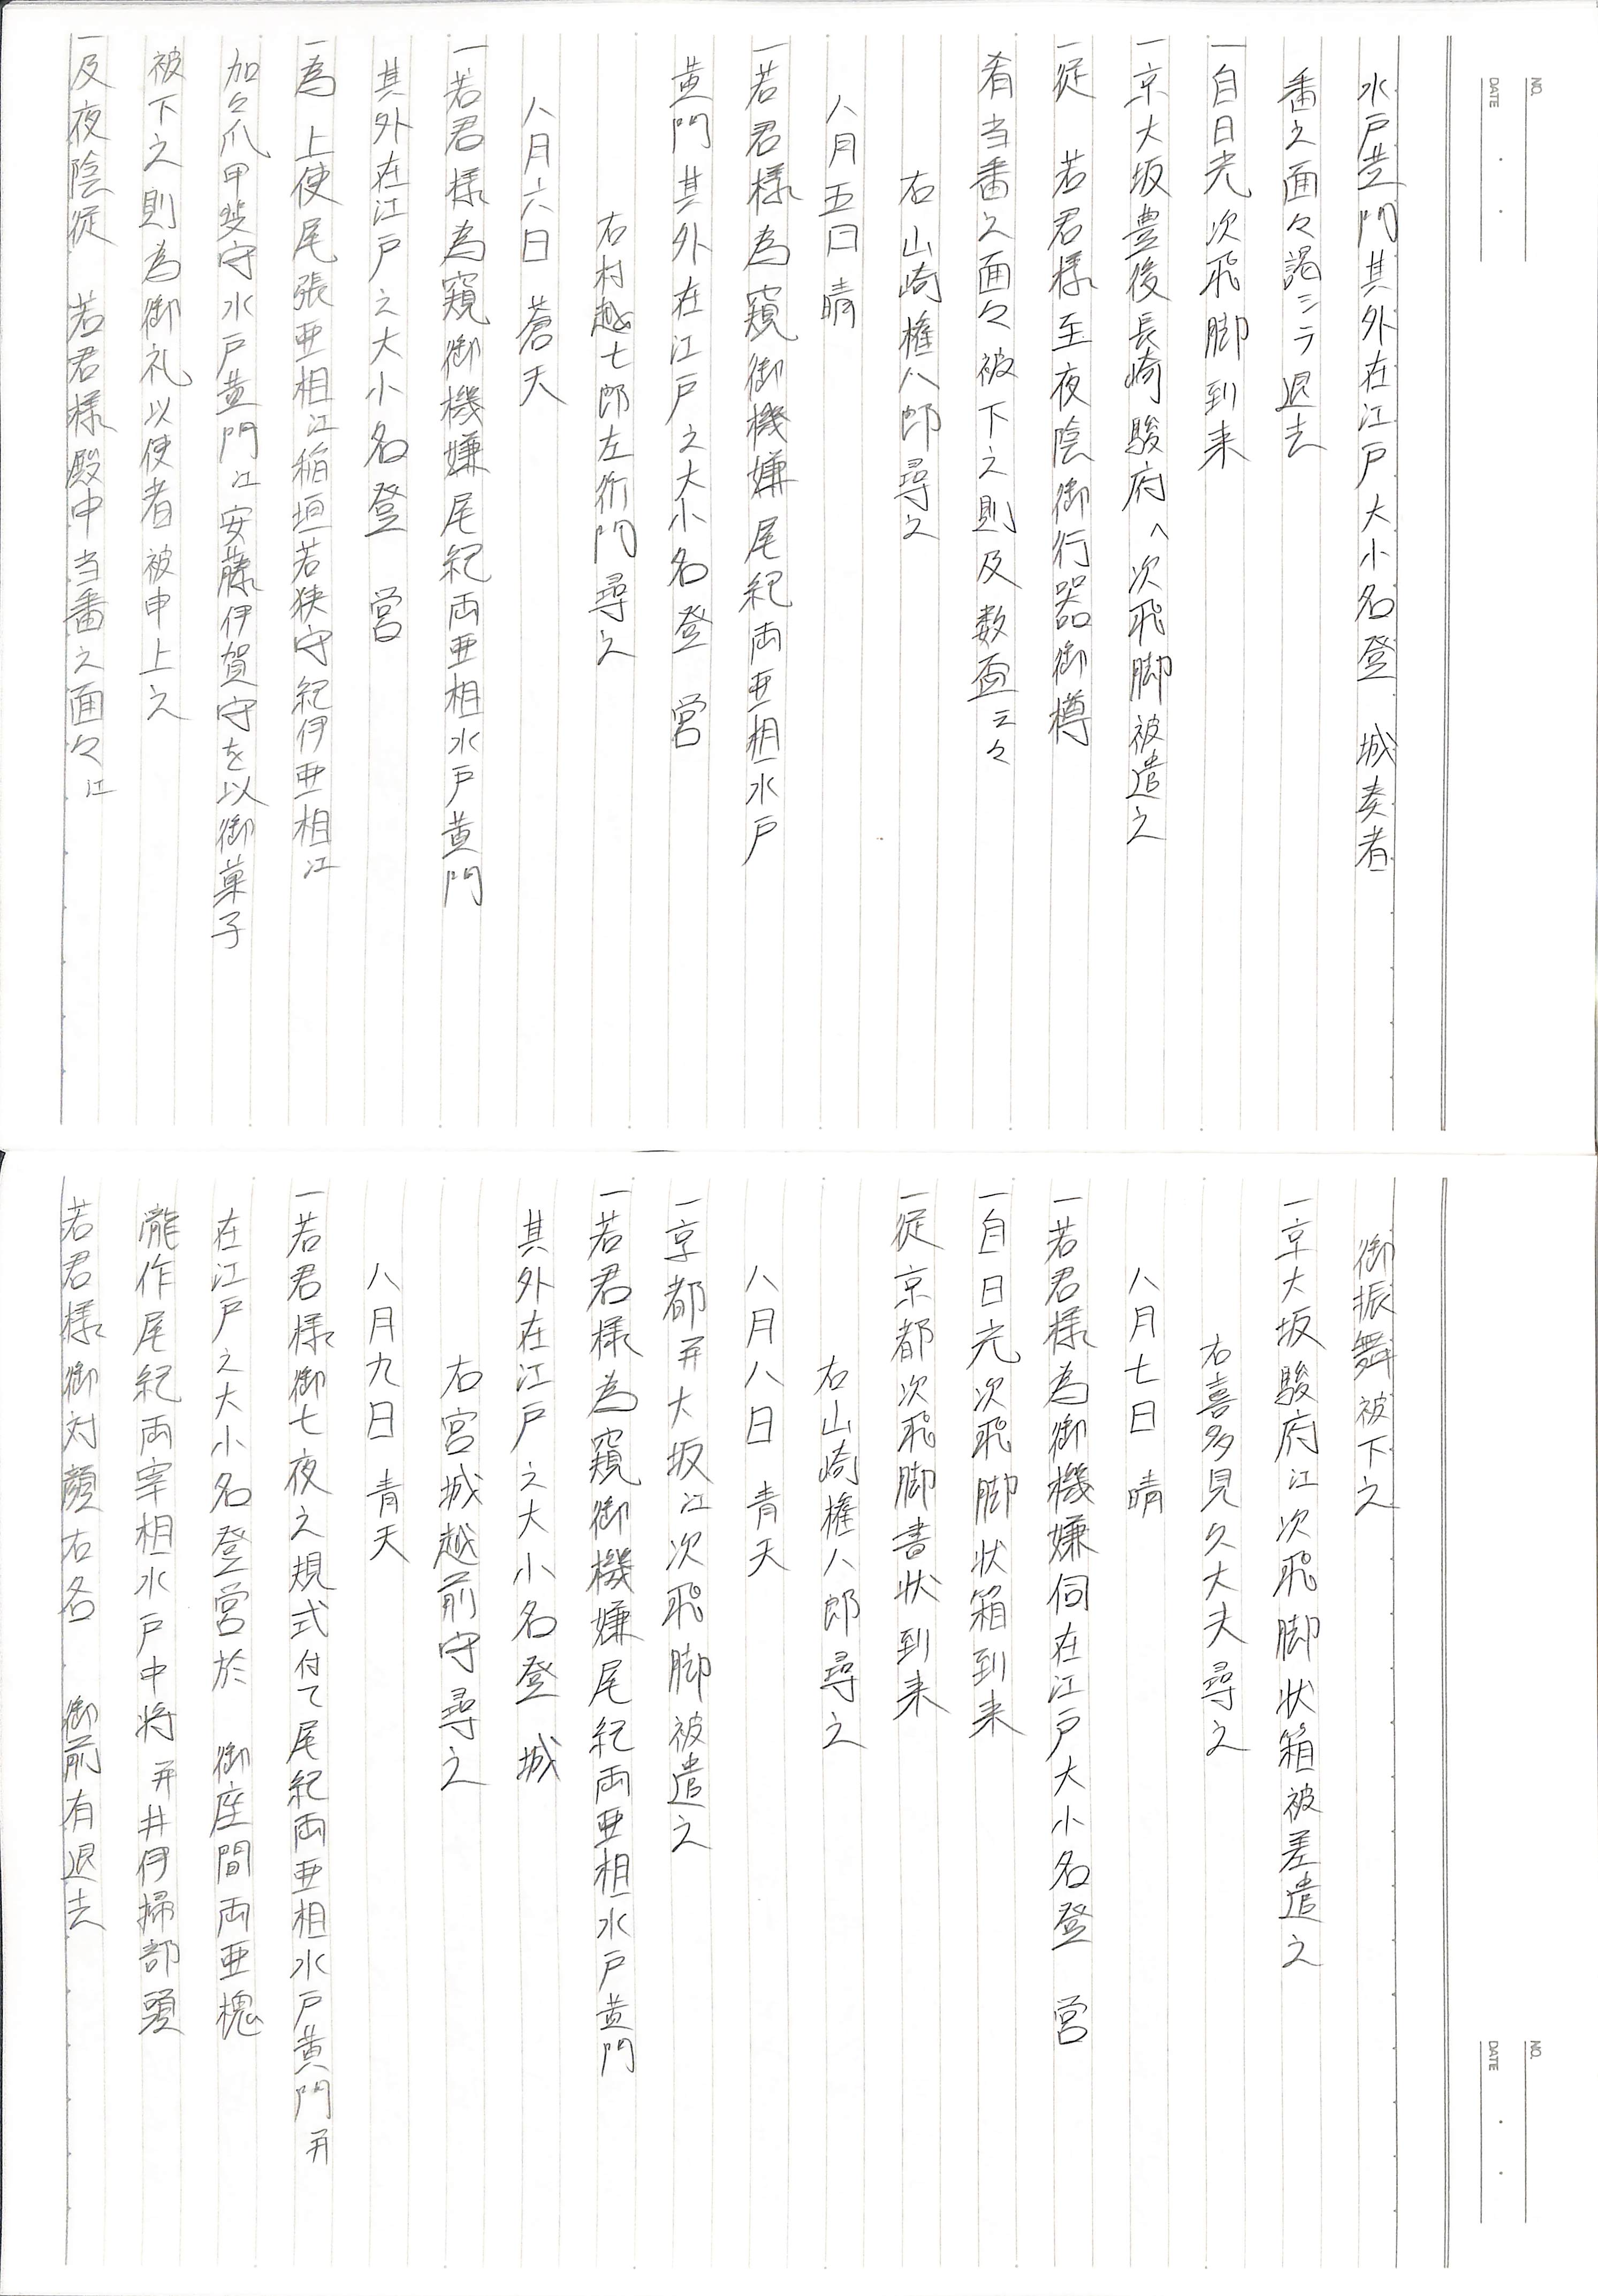 NO.
DATE
水戸黄門其外在江戸大小名登　城奏者
番之面々謁シテ退去
一自日光次飛脚到来
一京大坂豊後長崎駿府へ次飛脚被遣之
一従　若君様至夜陰御行器御樽
肴当番之面々被下之則及数盃云々
右山崎権八郎尋之
八月五日　晴
一若君様為窺御機嫌尾紀両亜相水戸
黄門其外在江戸之大小名登　営
右村越七郎左衛門尋之
八月六日　蒼天
一若君様為窺御機嫌尾紀両亜相水戸黄門
其外在江戸之大小名登　営
一為　上使尾張亜相江稲垣若狭守紀伊亜相江
加々爪甲斐守水戸黄門江安藤伊賀守を以御菓子
被下之則為御礼以使者被申上之
一及夜陰従　若君様殿中当番之面々江
NO.
DATE
御振舞被下之
一京大坂駿府江次飛脚状箱被差遣之
右喜多見久大夫尋之
八月七日　晴
一若君様為御機嫌伺在江戸大小名登　営
一自日光次飛脚状箱到来
一従京都次飛脚書状到来
右山崎権八郎尋之
八月八日　青天
一京都并大坂江次飛脚被遣之
一若君様為窺御機嫌尾紀両亜相水戸黄門
其外在江戸之大小名登　城
右宮城越前守尋之
八月九日　青天
一若君様御七夜之規式付て尾紀両亜相水戸黄門并
在江戸之大小名登営於　御座間両亜槐
龍作尾紀両宰相水戸中将并井伊掃部頭
若君様御対顔右各　御前有退去